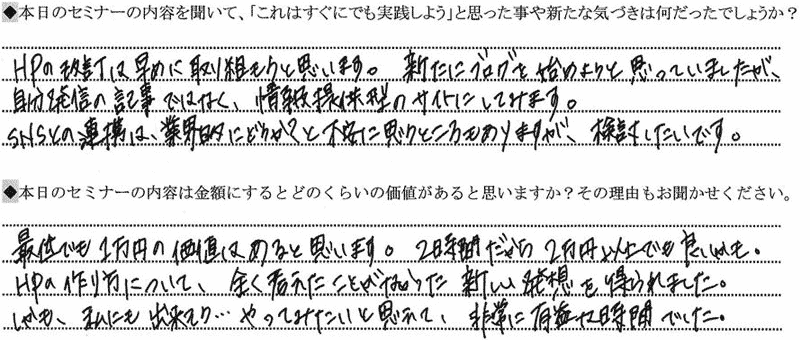 ◆本日のセミナーの内容を聞いて、「これはすぐにでも実践しよう」と思った事や新たな気づきは何だったでしょうか？
HPの改訂は早めに取り組もうと思います。新たにブログを始めようと思っていましたが、
自分発信の記事ではなく、情報提供型のサイトにしてみます。
SNSとの連携は、業界的にどうか？と不安に思うところもありますが、検討したいです。
◆本日のセミナーの内容は金額にするとどのくらいの価値があると思いますか？その理由もお聞かせください。
最低でも1万円の価値はあると思います。2時間だから2万円以上でも良いかも。
HPの作り方について、全く考えたことがなかった新しい発想を得られました。
しかも、私にも出来そう…やってみたいと思えて、非常に有益な2時間でした。